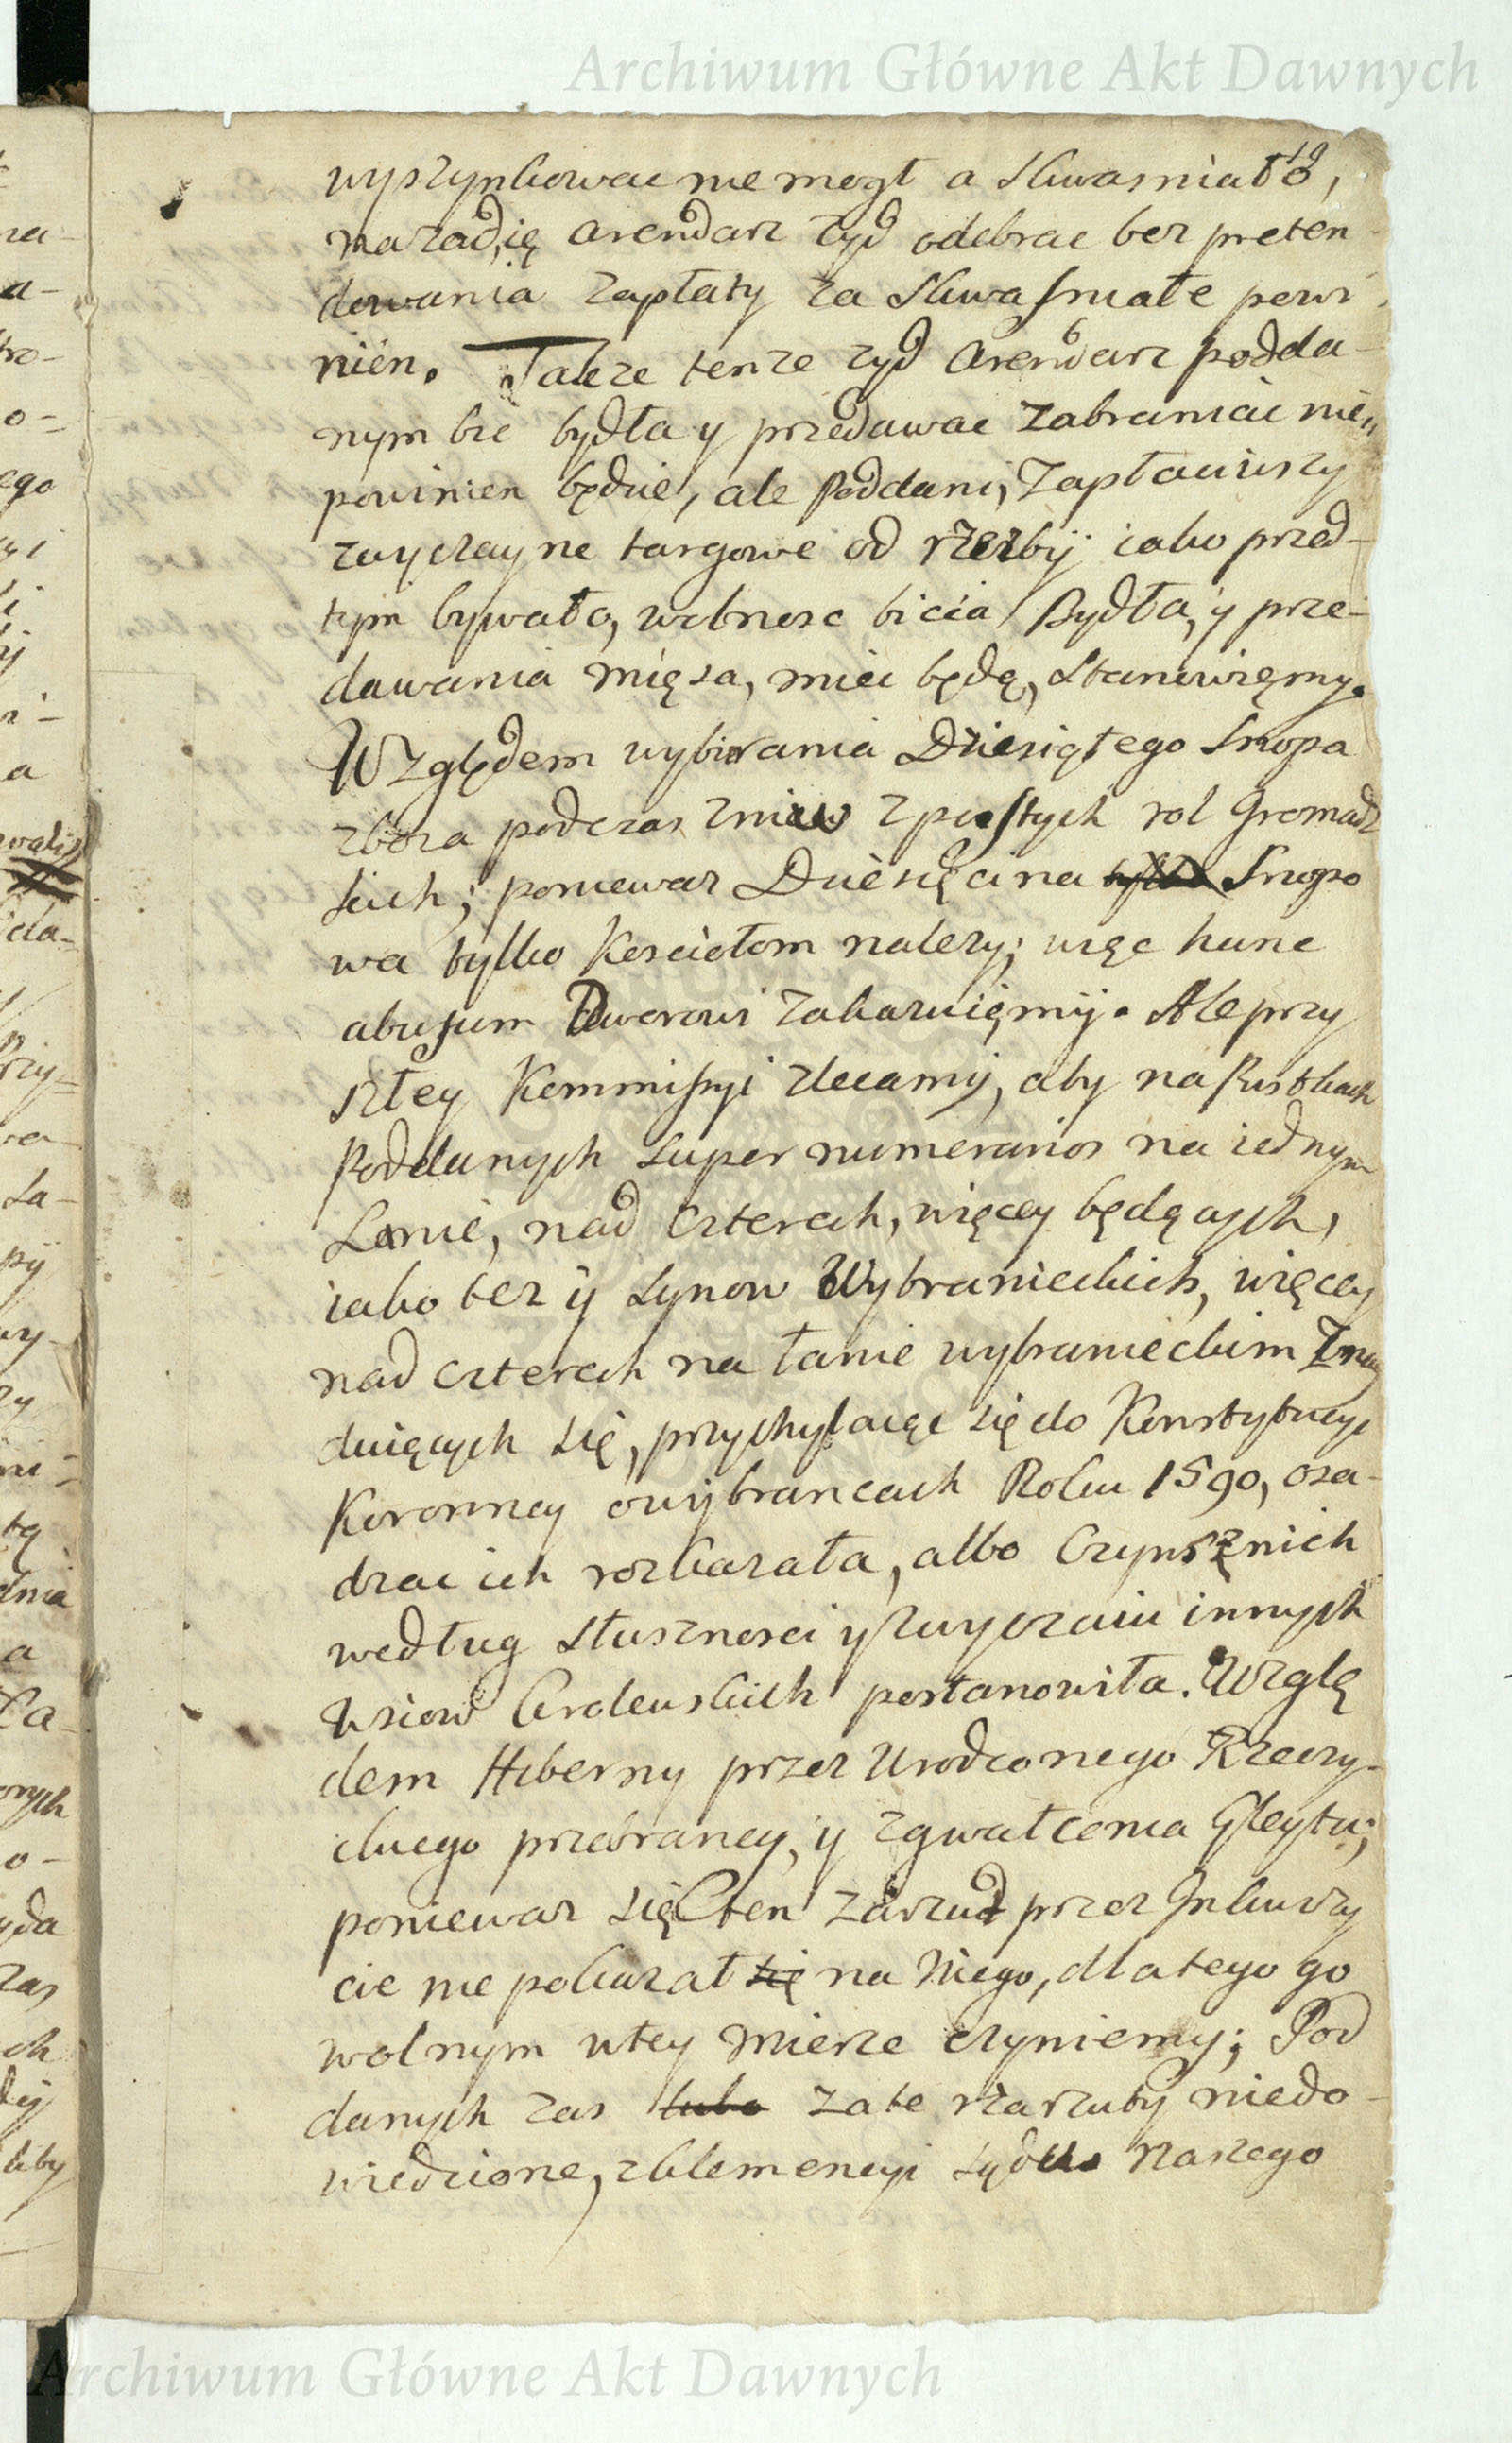 Archiwum Główne Akt Dawnych
19
wyszynkowac nie mogł a skwasniało,
nazad ię arendarz zyd odebrac bez preten-
dowania zapłaty za skwasniałe powi-
nien. Takze tenze zyd arendarz podda-
nym bic bydła y przedawac zabraniac nie
powinien będzie, ale Poddani, zapłaciwszy
zwyczayne targowe od rzezby iako przed-
tym bywało, wolnosc bicia Bydła, y prze-
dawania mięsa, miec będą, stanowięmy.
Względem wybirania Dziesiątego Snopa
zboza podczas zniw z pustych rol Gromadz
kich; poniewaz Dziesięcina Snopo
wa tylko Kosciołom nalezy; więc hunc
abusum Dworowi zakazuięmy. Ale przy
szłey Kommissyi zlecamy, aby na Pustkach
Poddanych supernumerarios na iednym
Lanie, nad czterech, więcey będących,
iako tez y synow Wybranieckich, więcey
nad czterech na łanie wybranieckim znay
duięcych się, przychylaięc się do Konstytucyi
Koronney o wybrancach Roku 1590, osa-
dzac ich rozkazała, albo Czynsz z nich
według słusznosci y zwyczaiu innych
wsiow krolewskich postanowiła. Wzglę
dem Hiberny przez Urodzonego Rzeczy-
ckiego przebraney, y zgwałcenia Gleytu;
poniewaz się ten zarzut przez Inkwizy
cie nie pokazał się na Niego, dlatego go
wolnym w tey mierze czyniemy; Pod
danych zas lubo za te zarzuty niedo-
wiedzione, z klemencyi sądu Naszego
Archiwum Główne Akt Dawnych